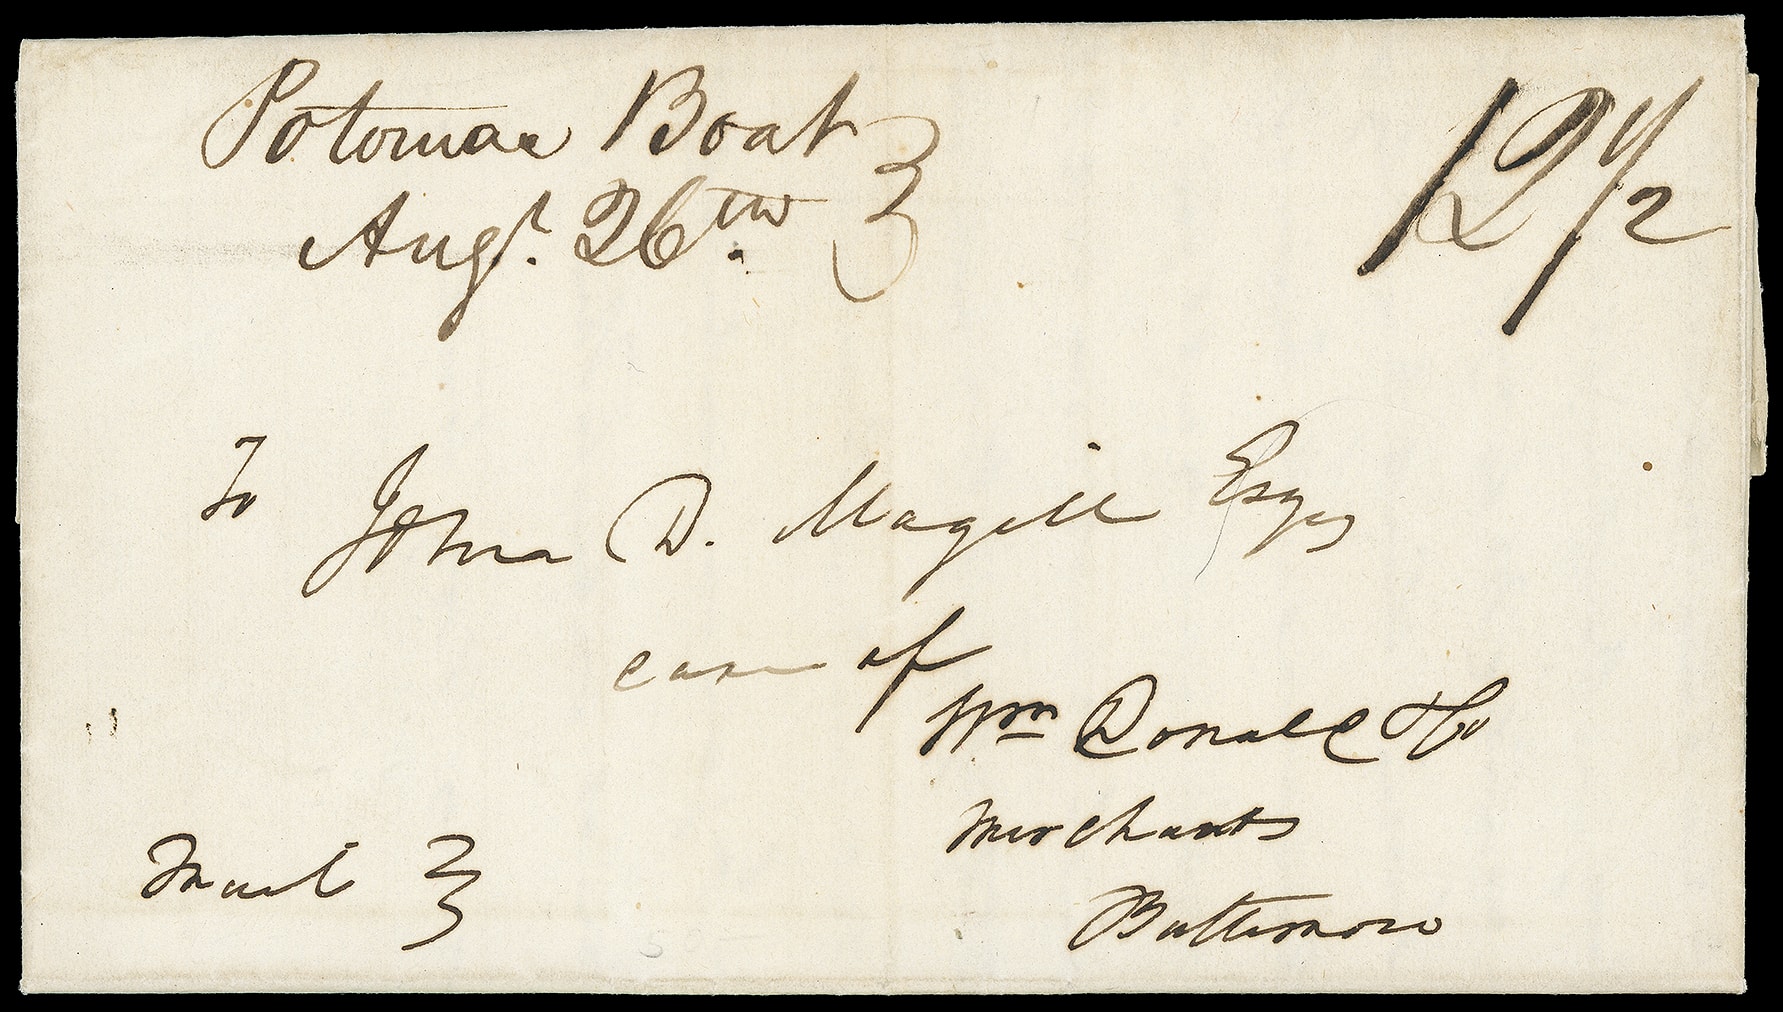 Potomac Boat }
Augt. 26th.
12 1/2
To John D. Magill Esqr
care of
Wm Donald & Co
Merchants
Baltimore
Mail }